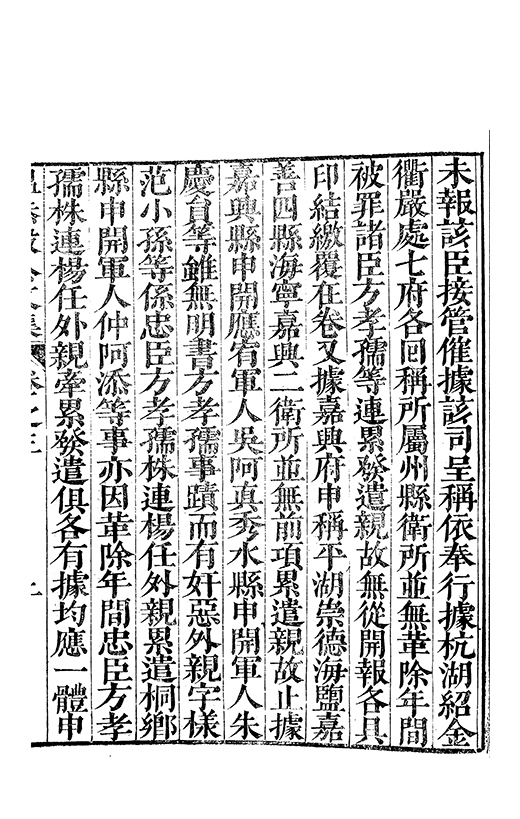 未報該臣接管催據該司呈稱依奉行據杭湖紹金
衢嚴處七府各回稱所屬州縣衛所並無革除年間
被罪諸臣方孝孺等連累發遣親故無從開報各具
印結繳覆在卷又據嘉興府申稱平湖崇德海鹽嘉
善四縣海寧嘉興二衛所並無前項累遣親故止據
嘉興縣申開應宥軍人吳阿真秀水縣申開軍人朱
慶貟等雖無明書方孝孺事蹟而有奸惡外親字樣
范小孫等係忠臣方孝孺株連楊任外親累遣桐鄉
縣申開軍人仲阿添等事亦因革除年間忠臣方孝
孺株連楊任外親牽累發遣俱各有據均應一體申
卷之三